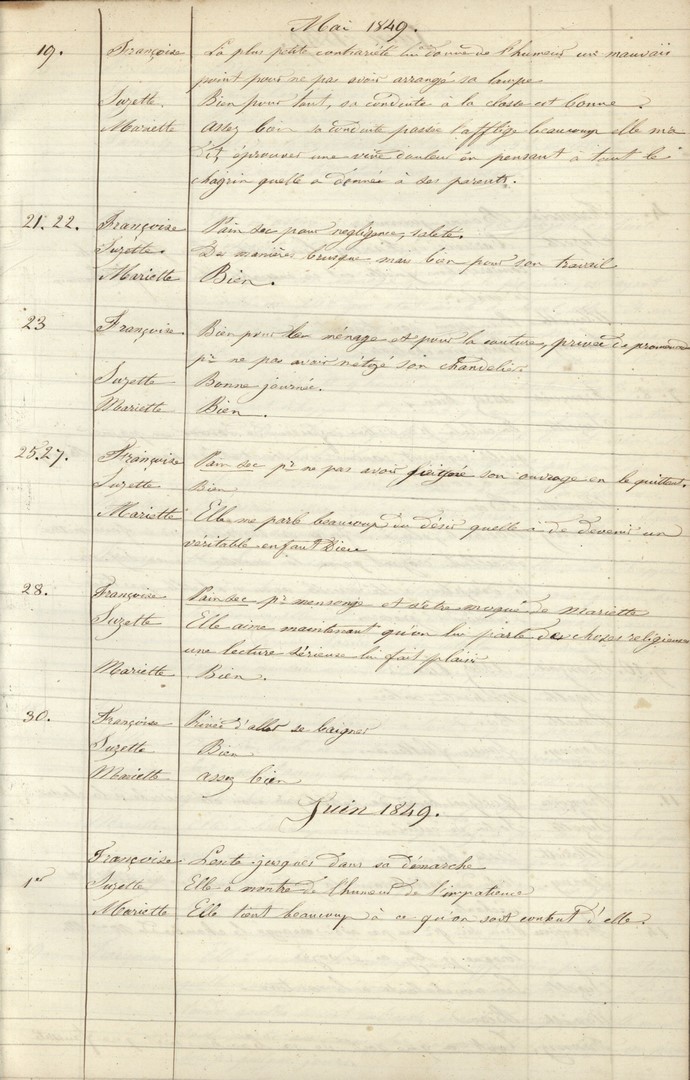 Mai 1849.
19. Françoise La plus petite contrariété lui donne de l'humeur un mauvais
point pour ne pas avoir arrangé sa lampe
Suzette. Bien pour tout, sa conduite à la classe est bonne.
Mariette assez bien sa conduite passée l'afflige beaucoup elle m'a
dit éprouver une vive douleur en pensant à tout le
chagrin quelle a donnée à ses parents.
21. 22. Françoise Pain sec pour negligence, saleté.
Suzette. Des manières brusque mais bien pour son travail
Mariette Bien.
23 Françoise. Bien pour le ménage et pour la couture, privée de promenade
pr ne pas avoir nétoyé son chandelier.
Suzette Bonne journée.
Mariette Bien.
25.27. Françoise Pain sec pr ne pas avoir son ouvrage en le quittant.
Suzette Bien
Mariette Elle me parle beaucoup du désir quelle à de devenir un
véritable enfant Dieu
28. Françoise Pain sec pr mensonje et s'etre moqué de Mariette
Suzette Elle aime maintenant qu'on lui parle de choses religieuses
une lecture sérieuse lui fait plaisir
Mariette Bien.
30. Françoise Privée d'aller se baigner
Suzette Bien
Mariette assez bien
Juin 1849.
Françoise Lente jusques dans sa démarche
1er Suzette Elle a montré de l'humeur de l'impatience
Mariette Elle tient beaucoup à ce qu'on soit content d'elle.